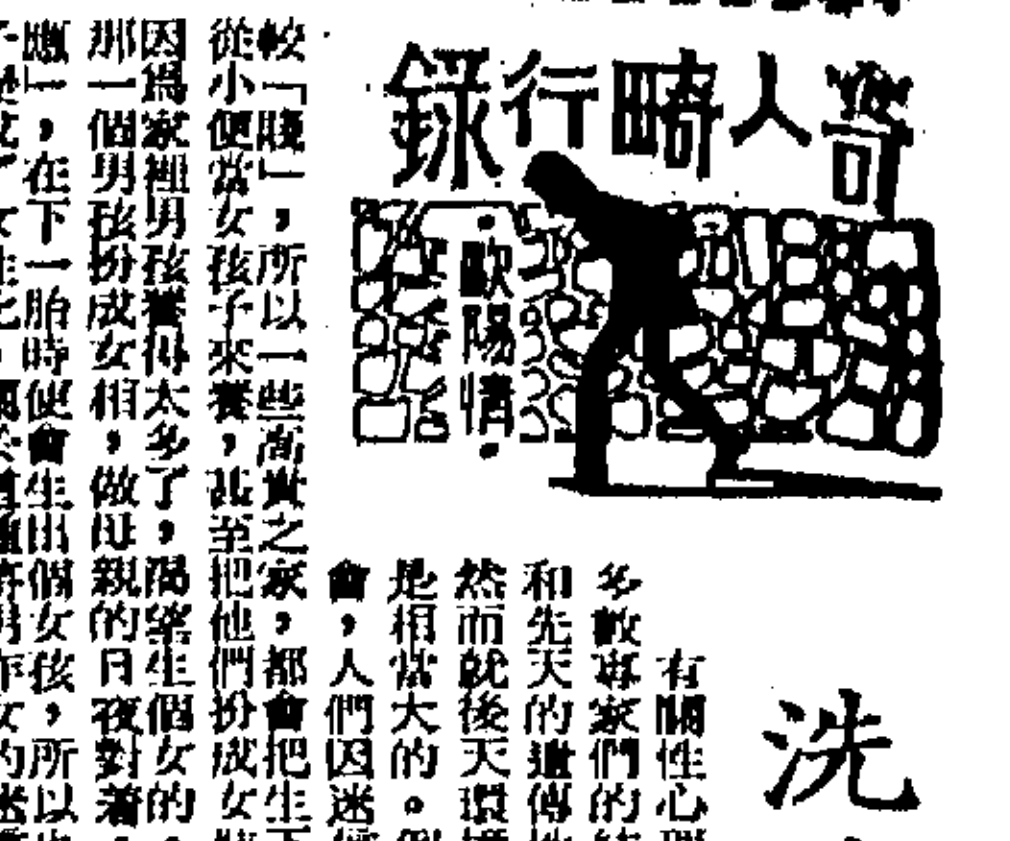 奇人畸行錄
·歐陽情·
洗
有關性心
多數專家們的
和先天的遺傳
然而就後天環
是相當大的。
會，人們因迷
較「賤」，所以一些高貴之家，都會把生下
從小便當女孩子來養，甚至把他們扮成女
因為家裡男孩養得太多了，渴望生個女的，
那一個男孩扮成女相，做母親的日夜對着，
應」，在下一胎時便會生出個女孩，所以